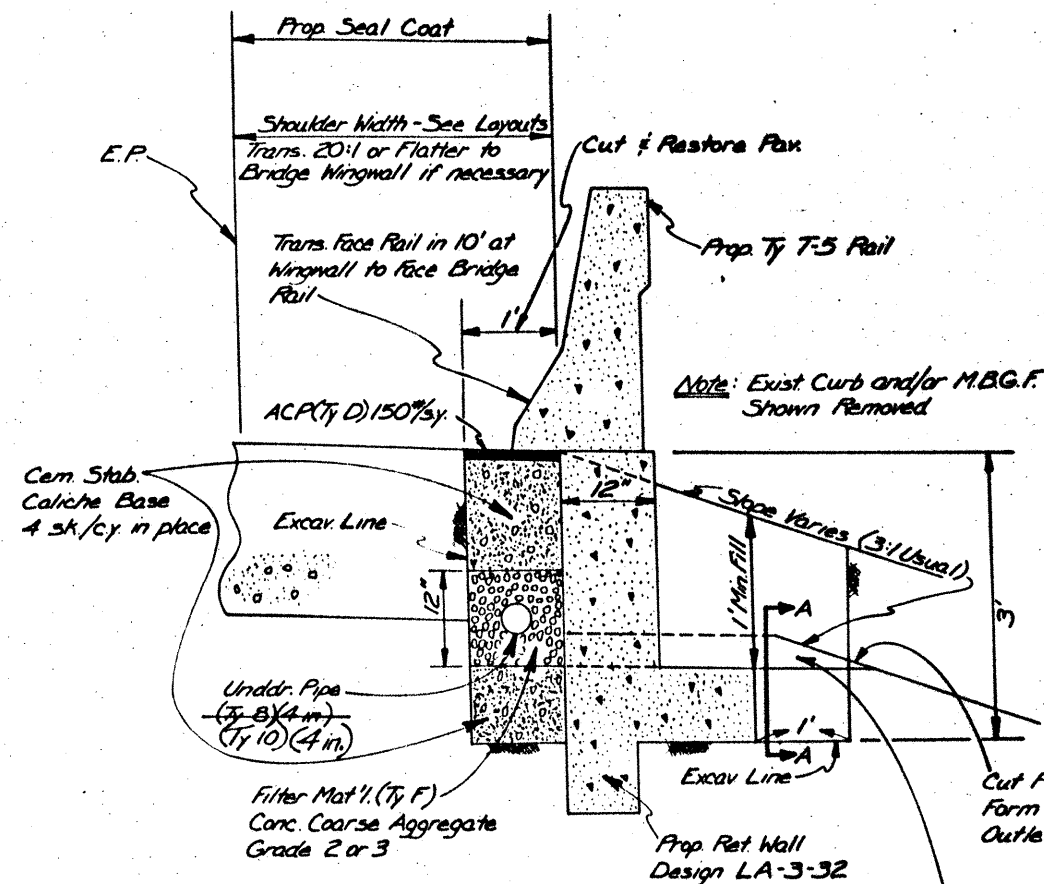 Prop. Seal Coat
Shoulder Width - See Layouts
Trans. 20:1 or Flatter to
Bridge Wingwall if necessary
E.P.
Cut & Restore Pav.
Trans. Face Rail in 10' at
Wingwall to Face Bridge
Rail
1'
Prop. Ty T-5 Rail
Note: Exist. Curb and/or M.B.G.F.
Shown Removed
ACP(Ty D) 150#/sy.
Cem. Stab.
Caliche Base
4 sk/cy. in place
Excav. Line
12"
12"
Slope Varies (3:1 Usual)
1' Min. Fill
3'
A
Unddr. Pipe
(Ty 8)(4 in)
(Ty 10)(4 in.)
1'
A
Excav. Line
Filter Mat'l. (Ty F)
Conc. Coarse Aggregate
Grade 2 or 3
Prop. Ret. Wall
Design LA-3-32
Cut F
Form
Outle